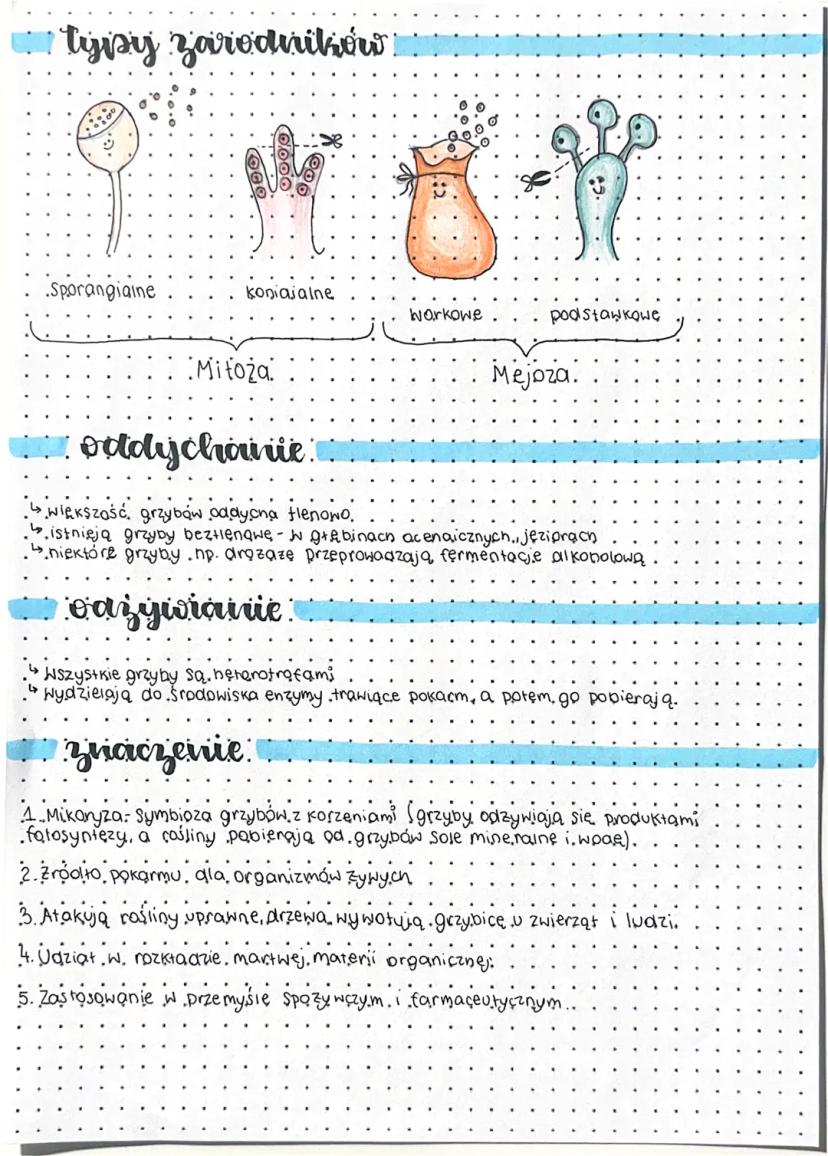 typy zarodników
sporangialne
konidialne
workowe
podstawkowe
Mitoza
Mejoza
oddychanie
↳ większość grzybów oddycha tlenowo
↳ istnieją grzyby beztlenowe - w głębinach oceanicznych, jeziorach
↳ niektóre grzyby np. drożdże przeprowadzają fermentację alkoholową
odżywianie
↳ Wszystkie grzyby są heterotrofami
↳ Wydzielają do środowiska enzymy trawiące pokarm, a potem go pobierają.
znaczenie
1. Mikoryza - Symbioza grzybów z korzeniami (grzyby odżywiają się produktami
fotosyntezy, a rośliny pobierają od grzybów sole mineralne i wodę).
2. Źródło pokarmu dla organizmów żywych
3. Atakują rośliny uprawne, drzewa, wywołują grzybicę u zwierząt i ludzi.
4. Udział w rozkładzie martwej materii organicznej.
5. Zastosowanie w przemyśle spożywczym i farmaceutycznym.